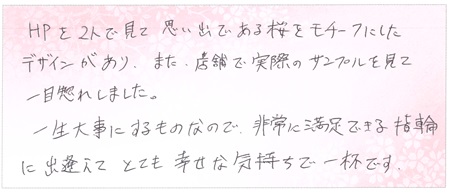 HPを2人で見て 思い出である桜をモチーフにした
デザインがあり、また、店舗で実際のサンプルを見て
一目惚れしました。
一生大事にするものなので、非常に満足できる指輪
に出逢えて とても幸せな気持ちで一杯です。